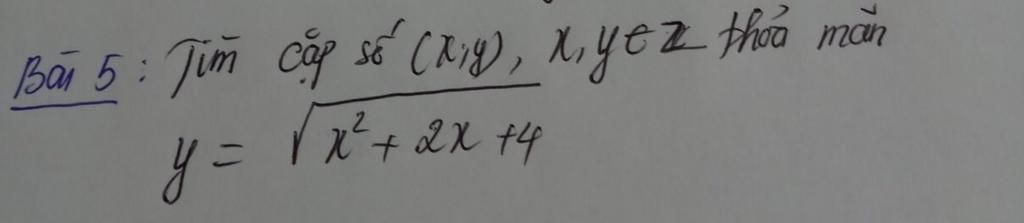 Bài 5 : Tìm cặp số (x,y), x,y ∈ Z thỏa mãn
y = √(x² + 2x + 4)